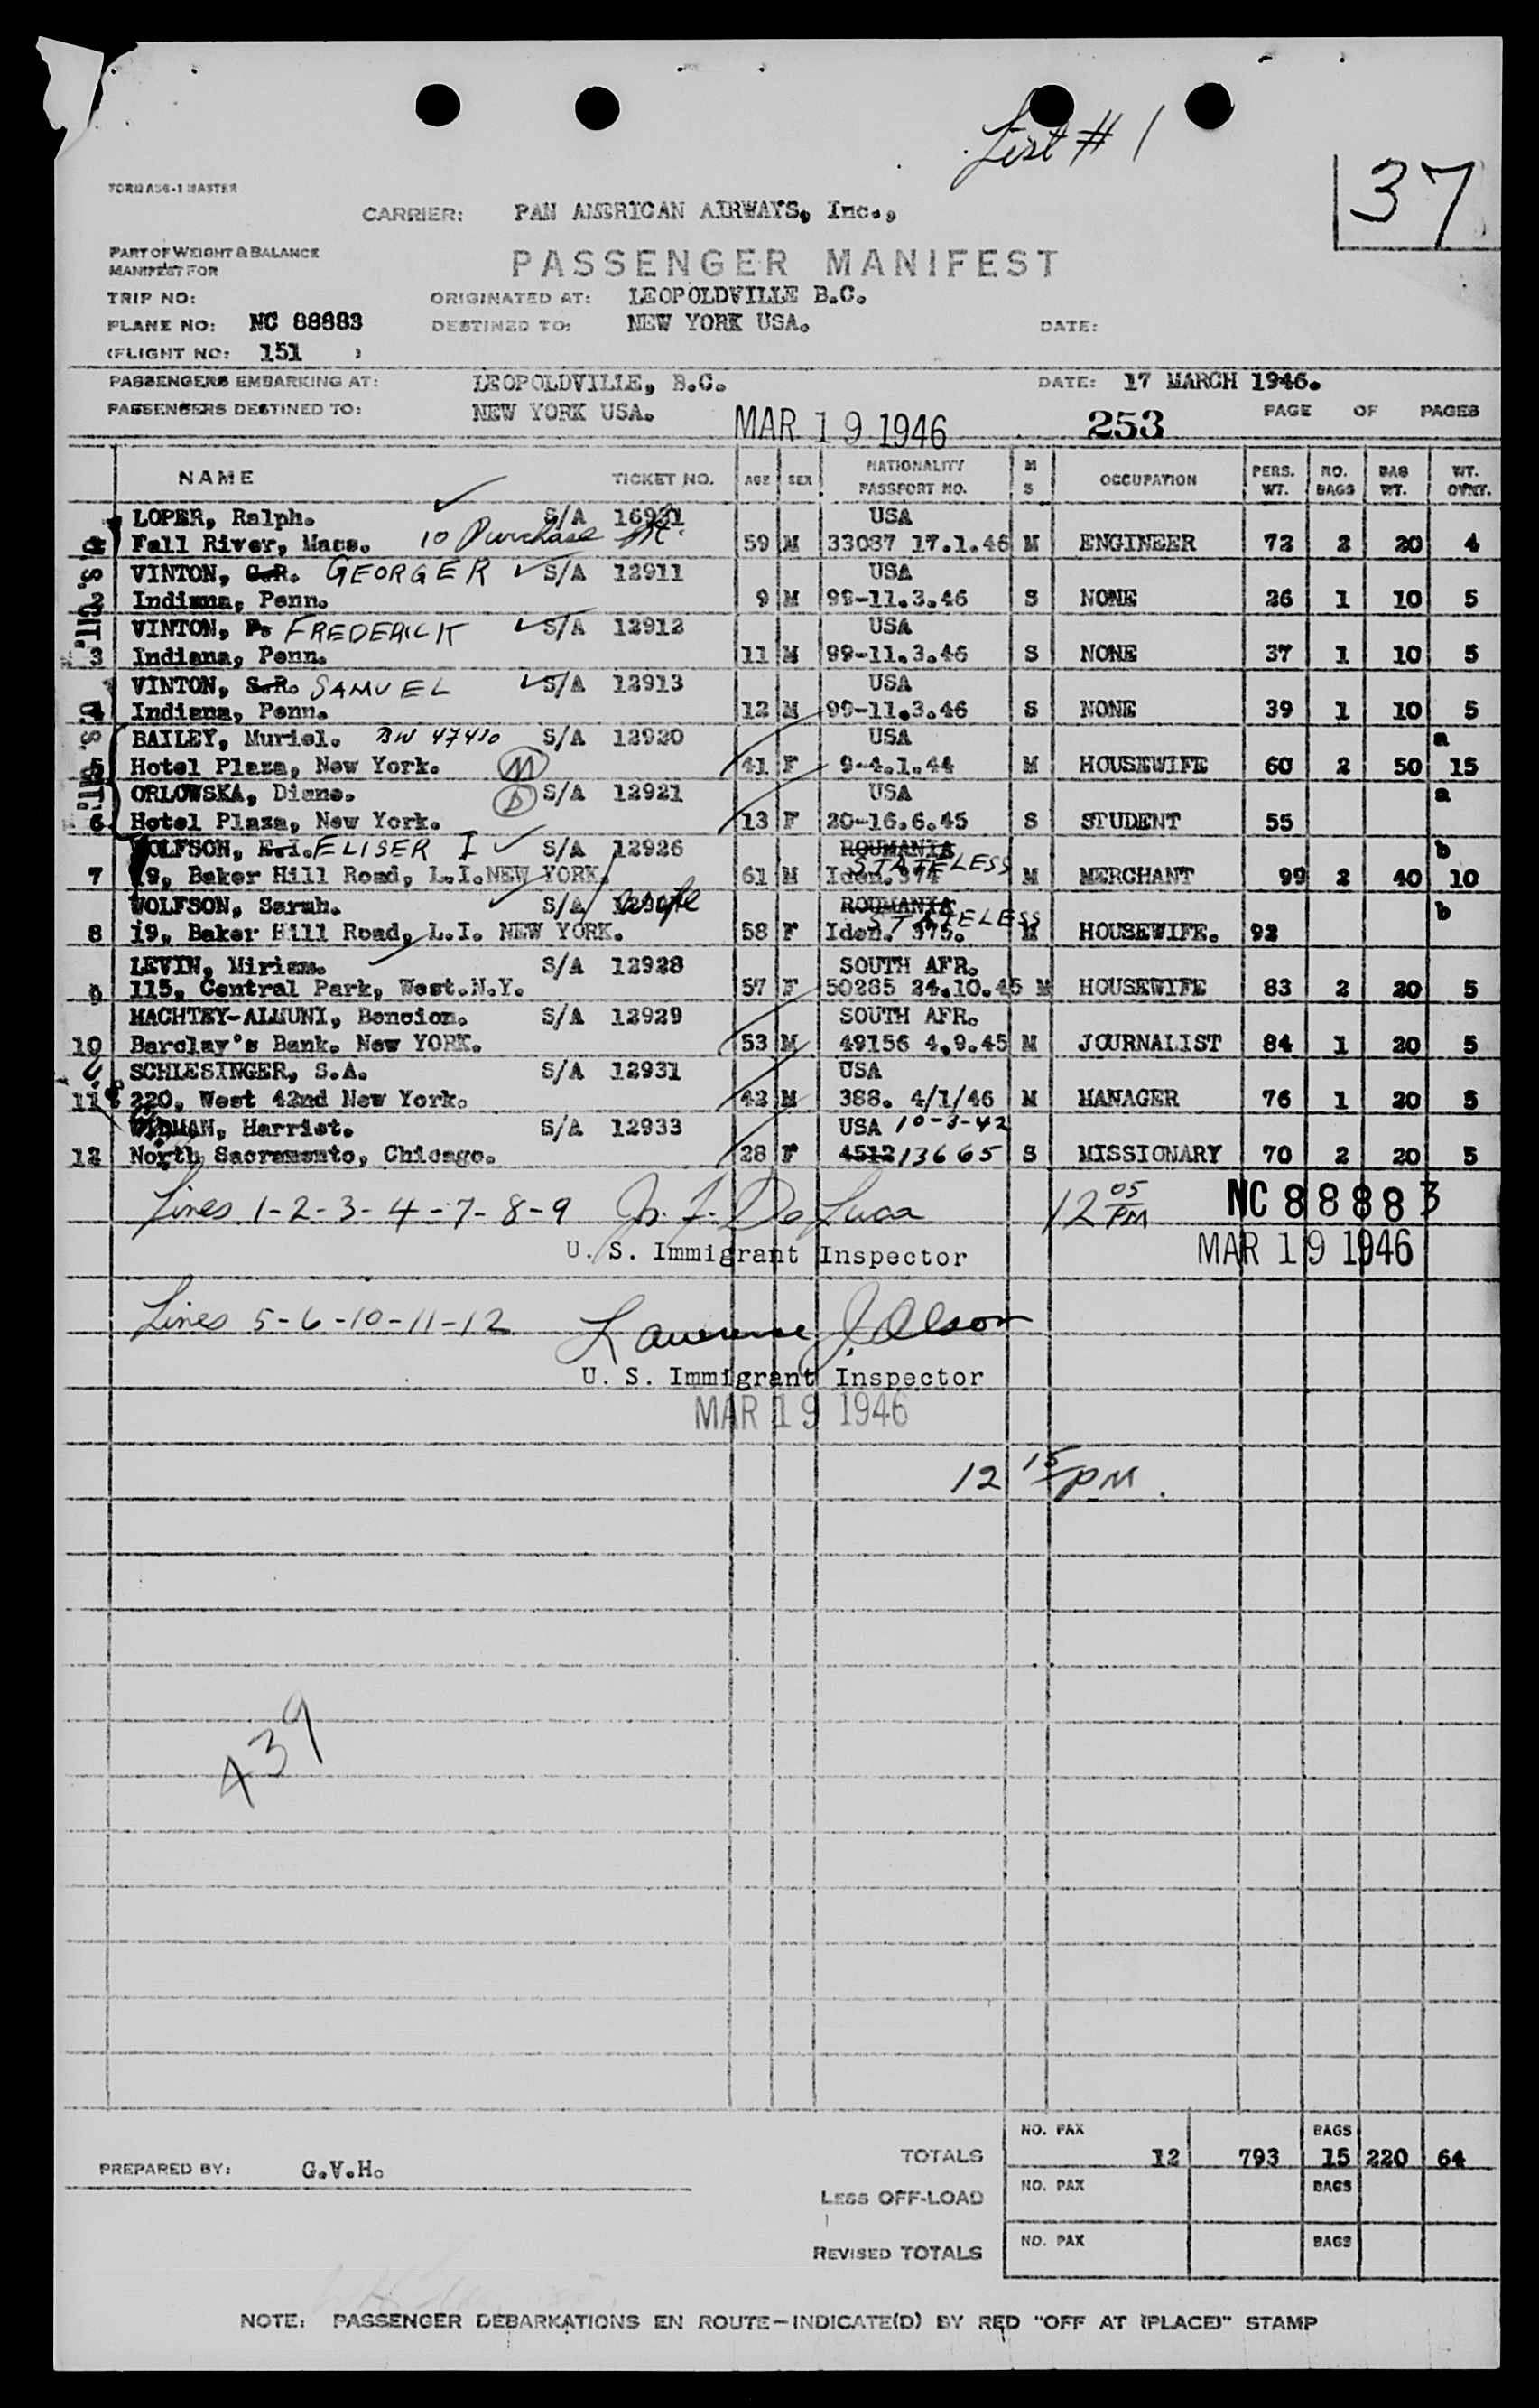 List # 1
37
FORM AS6-1 MASTER
CARRIER: PAN AMERICAN AIRWAYS, Inc.,
PART OF WEIGHT & BALANCE
MANIFEST FOR
PASSENGER MANIFEST
TRIP NO: ORIGINATED AT: LEOPOLDVILLE B.C.
PLANE NO: NC 88883 DESTINED TO: NEW YORK USA. DATE:
(FLIGHT NO: 151 )
PASSENGERS EMBARKING AT: LEOPOLDVILLE, B.C. DATE: 17 MARCH 1946.
PASSENGERS DESTINED TO: NEW YORK USA. MAR 19 1946 253 PAGE OF PAGES
NAME TICKET NO. AGE SEX NATIONALITY PASSPORT NO. M S OCCUPATION PERS. WT. NO. BAGS BAG WT. WT. OVNT.
LOPER, Ralph. S/A 16931 USA
Fall River, Mass. 10 Purchase St. 59 M 33087 17.1.46 M ENGINEER 72 2 20 4
VINTON, G.R. GEORGE R S/A 12911 USA
2 Indiana, Penn. 9 M 99-11.3.46 S NONE 26 1 10 5
VINTON, F. FREDERICK S/A 12912 USA
3 Indiana, Penn. 11 M 99-11.3.46 S NONE 37 1 10 5
VINTON, S.R. SAMUEL S/A 12913 USA
4 Indiana, Penn. 12 M 99-11.3.46 S NONE 39 1 10 5
BAILEY, Muriel. BW 47410 S/A 12920 USA a
5 Hotel Plaza, New York. M 41 F 9-4.1.44 M HOUSEWIFE 60 2 50 15
ORLOWSKA, Diane. D S/A 12921 USA a
6 Hotel Plaza, New York. 13 F 20-16.6.45 S STUDENT 55
WOLFSON, E.I. ELISER I S/A 12926 ROUMANIA STATELESS b
7 19, Baker Hill Road, L.I. NEW YORK. 61 M Iden. 374 M MERCHANT 99 2 40 10
WOLFSON, Sarah. S/A wife ROUMANIA STATELESS b
8 19, Baker Hill Road, L.I. NEW YORK. 58 F Iden. 375. M HOUSEWIFE. 92
LEVIN, Miriam. S/A 12928 SOUTH AFR.
9 115, Central Park, West.N.Y. 57 F 50285 24.10.45 M HOUSEWIFE 83 2 20 5
MACHTEY-ALMUNI, Bencion. S/A 12929 SOUTH AFR.
10 Barclay's Bank. New YORK. 53 M 49156 4.9.45 M JOURNALIST 84 1 20 5
SCHLESINGER, S.A. S/A 12931 USA
11 220, West 42nd New York. 42 M 388. 4/1/46 M MANAGER 76 1 20 5
WIDMAN, Harriet. S/A 12933 USA 10-3-42
12 North Sacramento, Chicago. 28 F 4512 13665 S MISSIONARY 70 2 20 5
U.S. CIT.
U.S. CIT.
U.S.
Lines 1-2-3-4-7-8-9 De Luca 12 05 PM NC 88883
U. S. Immigrant Inspector MAR 19 1946
Lines 5-6-10-11-12 Lawrence J. Olson
U. S. Immigrant Inspector
MAR 19 1946
12 15 PM.
439
NO. PAX BAGS
TOTALS 12 793 15 220 64
PREPARED BY: G.V.H.
LESS OFF-LOAD NO. PAX BAGS
REVISED TOTALS NO. PAX BAGS
NOTE: PASSENGER DEBARKATIONS EN ROUTE—INDICATE(D) BY RED "OFF AT (PLACE)" STAMP